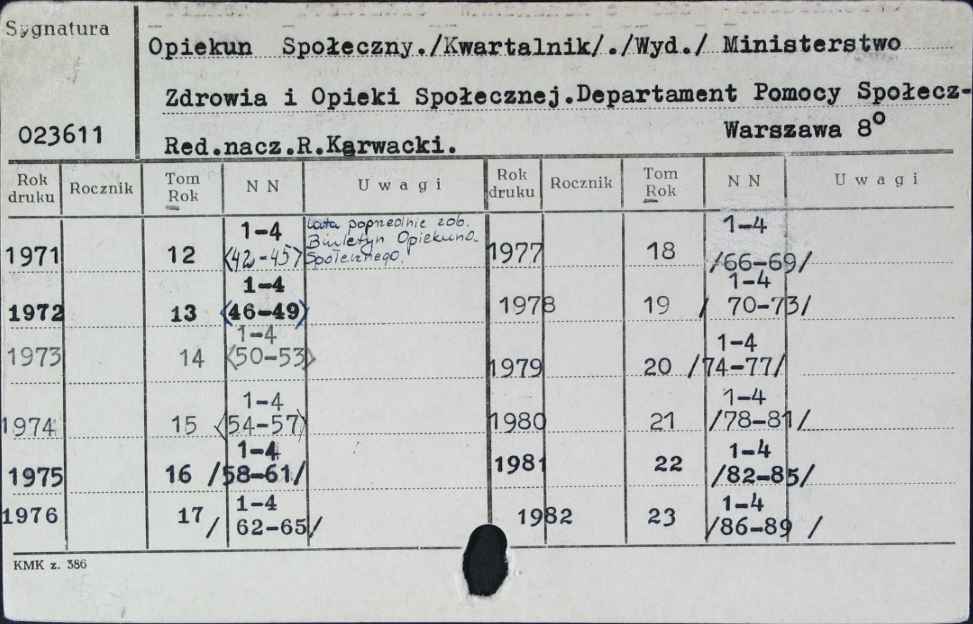 Sygnatura
Opiekun Społeczny./Kwartalnik/./Wyd./ Ministerstwo
Zdrowia i Opieki Społecznej.Departament Pomocy Społecz-
023611
Warszawa 8°
Red.nacz.R.Karwacki.
Rok druku Rocznik Tom Rok NN Uwagi Rok druku Rocznik Tom Rok NN Uwagi
1971 12 1-4 <42-45> Lata poprzednie zob. Biuletyn Opiekuna Społecznego. 1977 18 1-4 /66-69/
1972 13 1-4 <46-49> 1978 19 1-4 / 70-73/
1973 14 1-4 <50-53> 1979 20 1-4 /74-77/
1974 15 1-4 <54-57> 1980 21 1-4 /78-81/
1975 16 1-4 /58-61/ 1981 22 1-4 /82-85/
1976 17 1-4 / 62-65/ 1982 23 1-4 /86-89 /
KMK z. 386